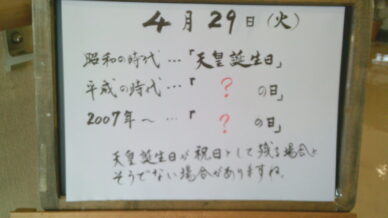 4月29日(火)
昭和の時代…「天皇誕生日」
平成の時代…「 ? の日」
2007年～…「 ? の日」
天皇誕生日が祝日として残る場合と
そうでない場合がありますね。